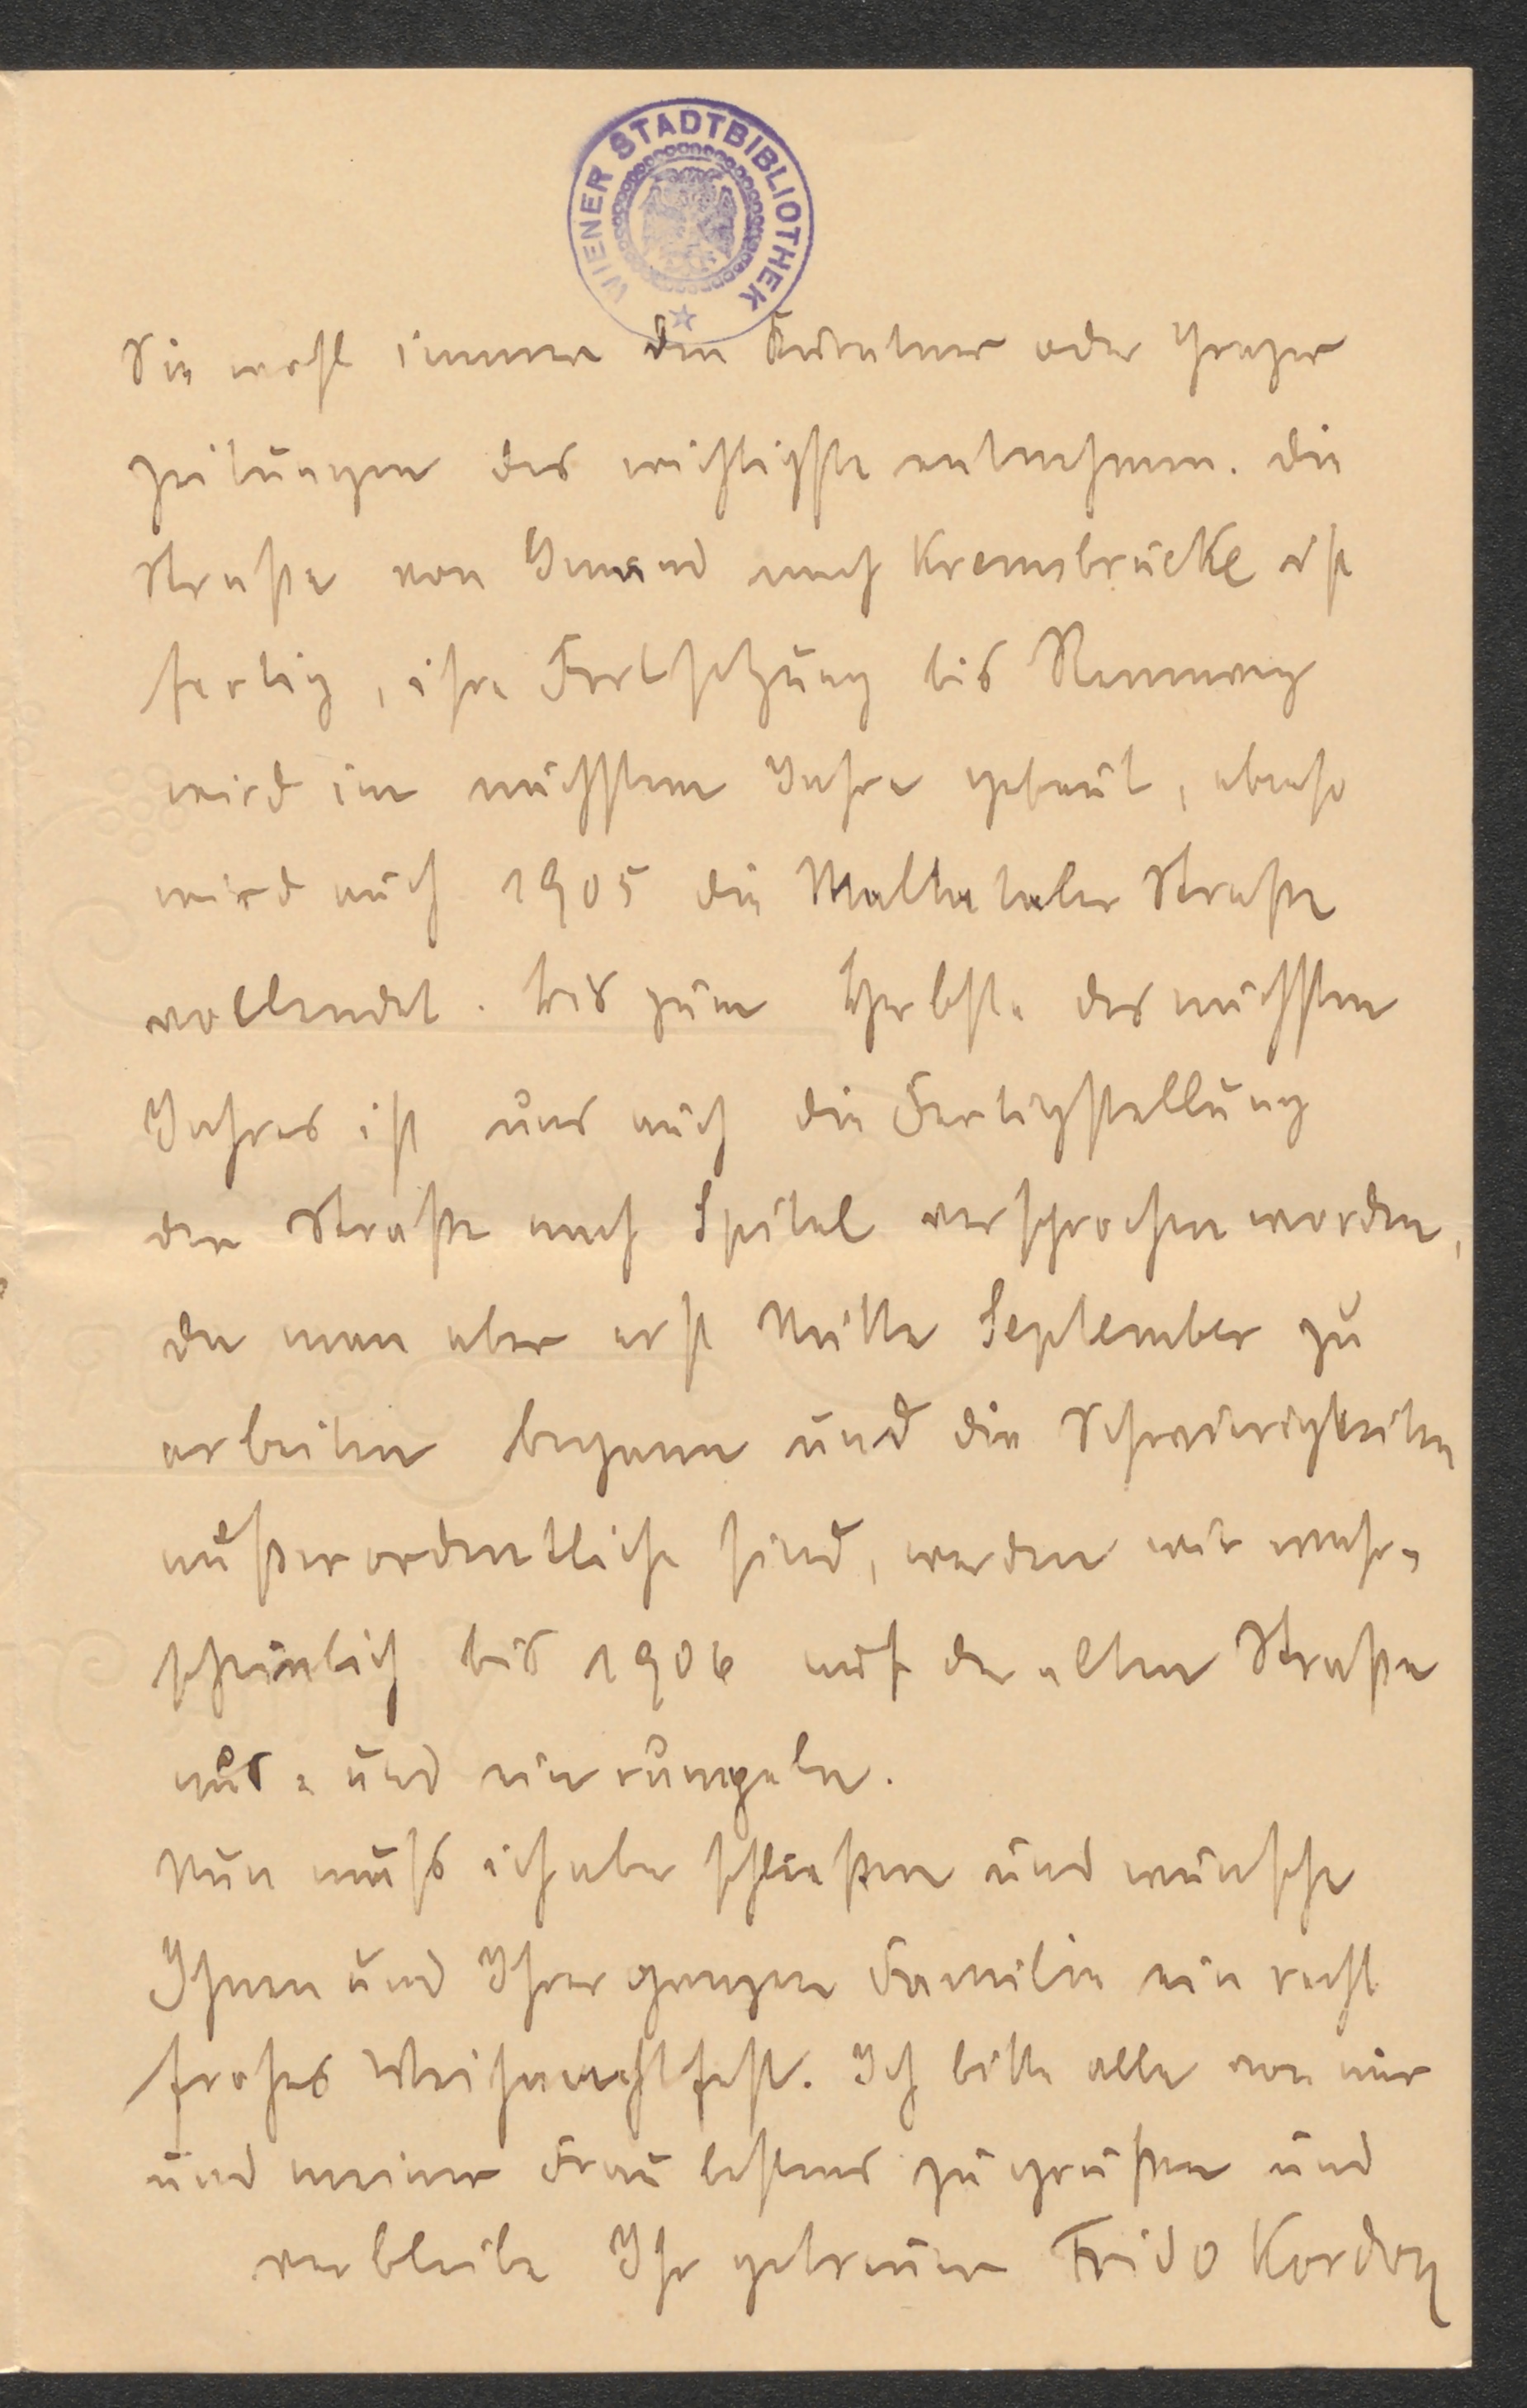 WIENER STADTBIBLIOTHEK
Sie wohl immer den Kärntner oder Grazer
Zeitungen das wichtigste entnehmen. Die
Straße von Gmünd nach Kremsbrücke ist
fertig, ihre Fortsetzung bis Rennweg
wird im nächsten Jahre gebaut, ebenso
wird auch 1905 die Maltataler Straße
vollendet. Bis zum Herbste des nächsten
Jahres ist uns auch die Fertigstellung
der Straße nach Spital versprochen worden,
da man aber erst Mitte September zu
arbeiten begann und die Schwierigkeiten
außerordentliche sind, werden wir wahr-
scheinlich bis 1906 auf der alten Straße
aus- und einrumpeln.
Nun muß ich aber schließen und wünsche
Ihnen und Ihrer ganzen Familie ein recht
frohes Weihnachtsfest. Ich bitte alle von mir
und meiner Frau bestens zu grüßen und
verbleibe Ihr getreuer Frido Kordon